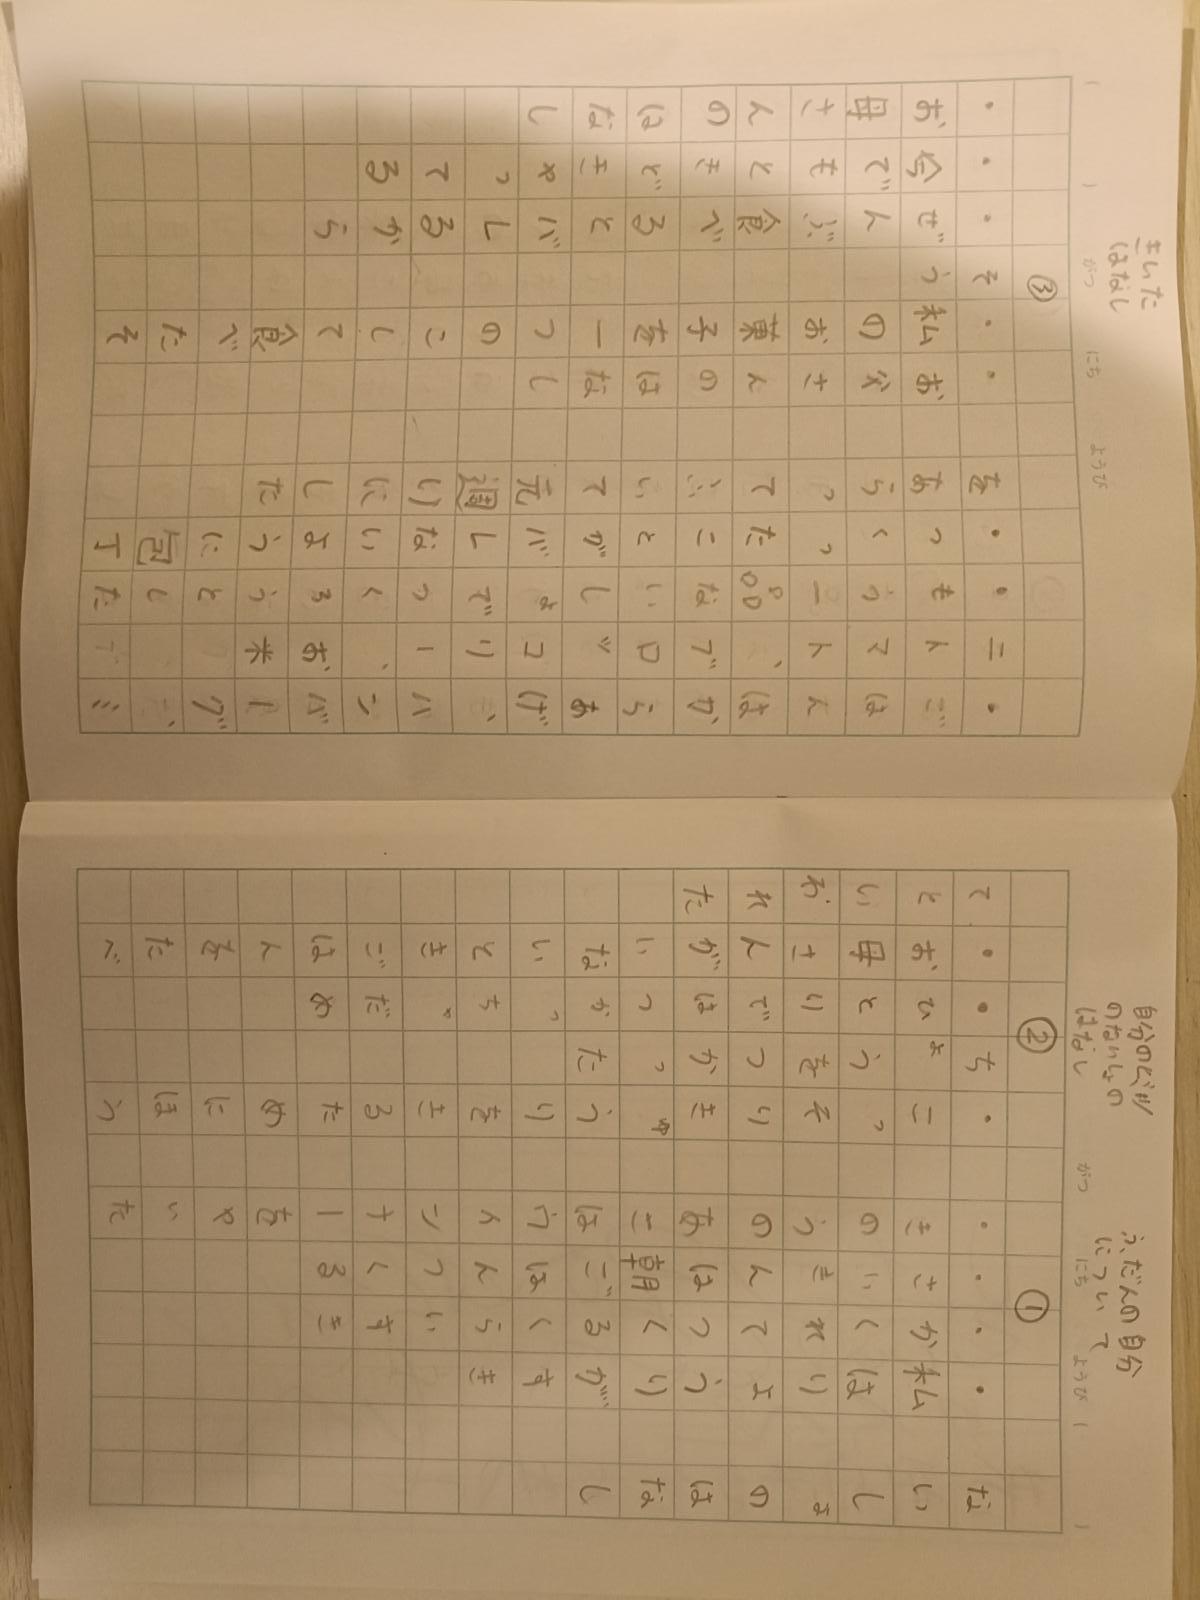 ないしょのはなし
①
ふだんの自分
について
・私はりょうりがすき
・かくれてつくるくらいすき
・さいきんは朝ごはんつくる
・きのうのあさはウインナーをやいた
②
自分の
のないしょの
はなし
・こっそりきゅうりをきるためにほう
ちょうをつかった
・ひとりではつかっちゃだめ
・お母さんがいないときごはんをたべ
てといわれた
がつ にち ようび
・ごはんはからあげ、ハンバーグ、ミ
ニトマト、ブロッコリー、お米
・もう一品ないしょでつくろうとした
・つくったことがバレないように包丁
をあらってふいて元通りにした
③
きいた
はなし
・お父さんのはなし
・私のお菓子を一つのこして食べたそ
う
・ぜんぶ食べるとバレるから
・今でもときどきやってる
・お母さんのはなし
がつ にち ようび